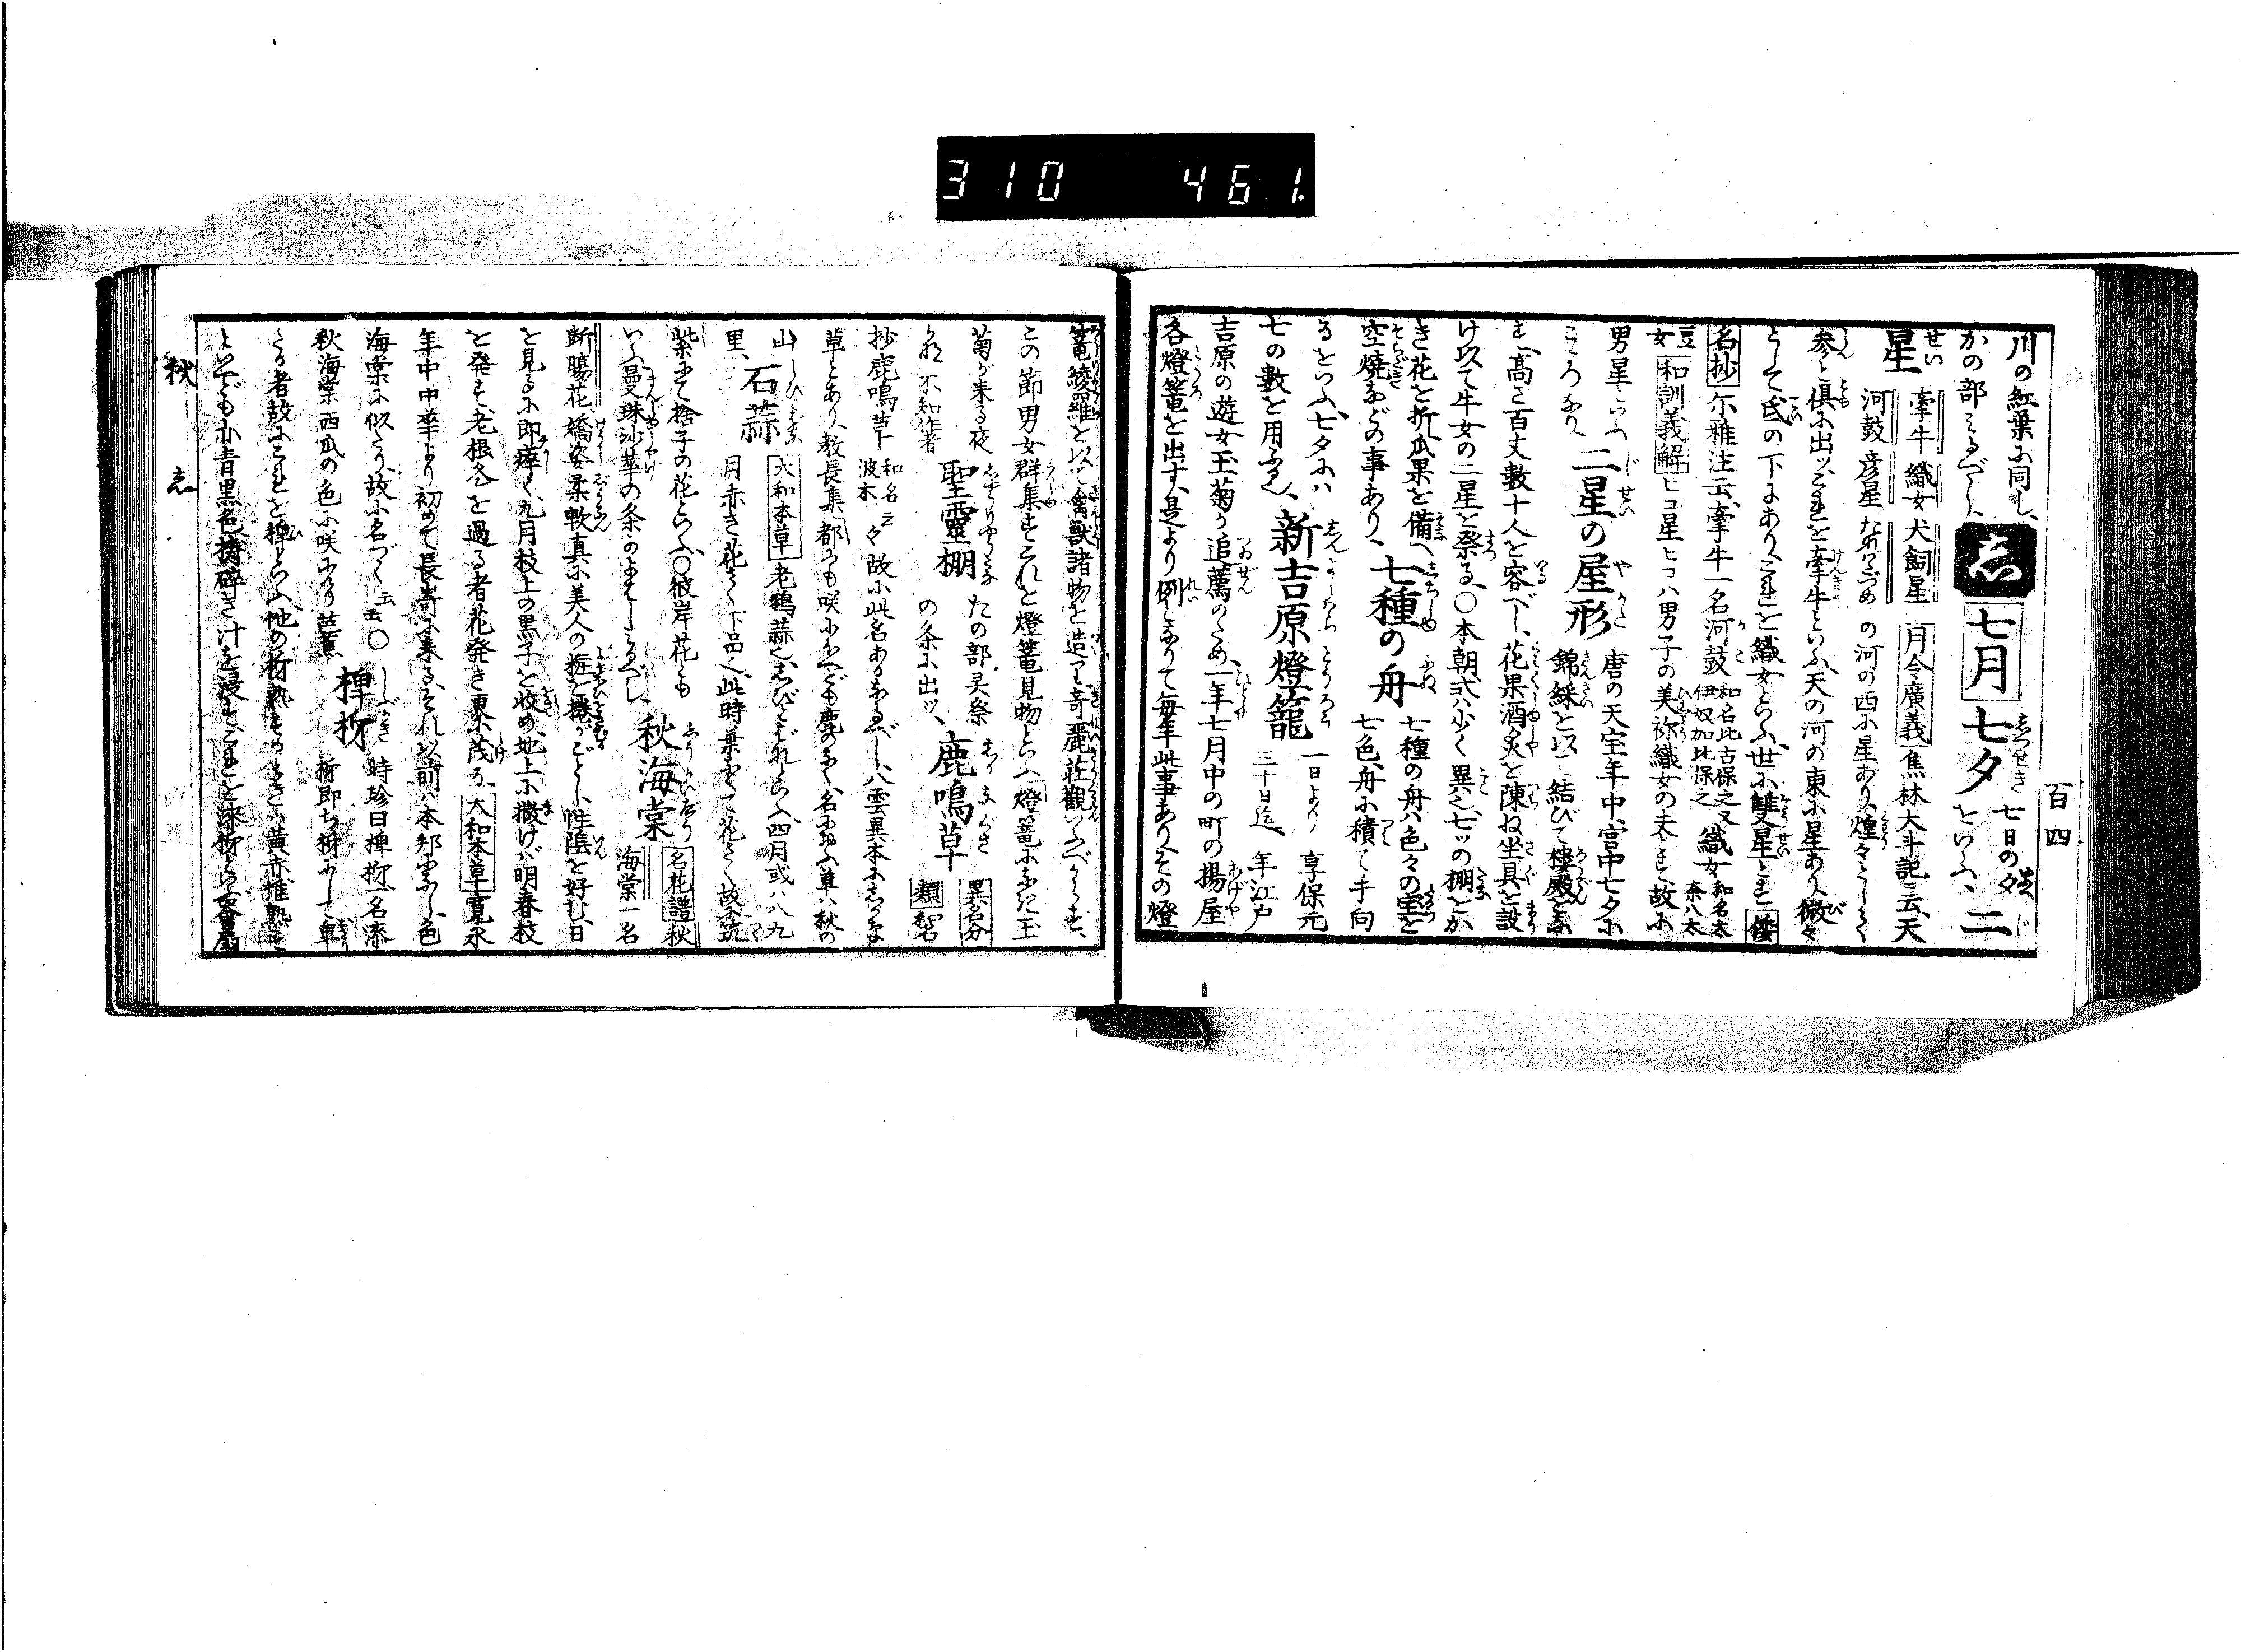 310 461.
百四
川の紅葉に同し、
かの部にみるべし、
し
七月
七夕
七日の夕を
といふ、
二
星
牽牛 織女 犬飼星
河鼓 彦星 たなばたつめ
月令廣義 焦林大斗記云、天
の河の西に星あり、煌々として
参と倶に出ツ、これを牽牛といふ、天の河の東に星あり、微々
として氐の下にあり、これを織女といふ、世に雙星とす 倭
名抄 尓雅注云、牽牛一名河鼓 和名比古保之又 伊奴加比保之 織女 和名太 奈八太
豆 女 和訓義解 ヒコ星ヒコハ男子の美称織女の夫とす故に
男星といふ
こころなり、
二星の屋形
唐の天宝年中、宮中七夕に
錦綵を以て結びて樓殿となす
高さ百丈數十人を容べし、花果酒炙を陳ね坐具を設
け以て牛女の二星を祭る、〇本朝式ハ少く異也、七ッの棚をか
き花を折、瓜果を備へ
空焼などの事あり、
七種の舟
七種の舟ハ色々の宝を
七色、舟に積て手向
るをいふ、七夕にハ
七の數を用ふ也、
新吉原燈籠
一日より
三十日迄、
享保元
年江戸
吉原の遊女玉菊が追薦のため、一年七月中の町の揚屋
各燈篭を出す、是より例となりて毎年此事あり、その燈
篭綾羅を以て禽獣諸物を造り奇麗荘觀いふべからず、
この節男女群集すこれを燈篭見物といふ、燈篭になき玉
菊が来る夜
かな 不知作者
聖靈棚
たの部、灵祭
の条に出ッ、
鹿鳴草
異名分
類 和名
抄鹿鳴草 和名 波木 云々故に此名あるなるべし、八雲異本にしかなく
草とあり、教長集、都にも咲にけれども鹿のなく名におふ草ハ秋の
山
里、
石蒜
大和本草 老鴉蒜也、しびとばなといふ、四月或ハ八九
月赤き花さく下品也、此時葉なくて花さく故に筑
紫にて捨子の花といふ、〇彼岸花とも
いふ曼珠沙華の条のよせしみるべし、
秋海棠
名花譜 秋
海棠一名
断腸花、嬌姿柔軟真に美人の粧に捲がごとし、性陰を好む、日
を見るに即瘁く、九月枝上の黒子を收め、地上に撒けバ明春枝
を発す、老根冬を過る者花発き更に茂る、大和本草 寛永
年中中華より初めて長崎に来る、それ以前ハ本邦になし、色
海棠に似たり、故に名づく 云云 〇
秋海棠西瓜の色に咲にけり 芭蕉
椑柿
時珍曰椑柿一名漆
柿即ち柿にして卑
たる者故にこれを椑といふ、他の柿熟するときハ黄赤惟熟す
といへども亦青黒色、擣碎き汁を浸す、これを漆柿といふ
秋 し